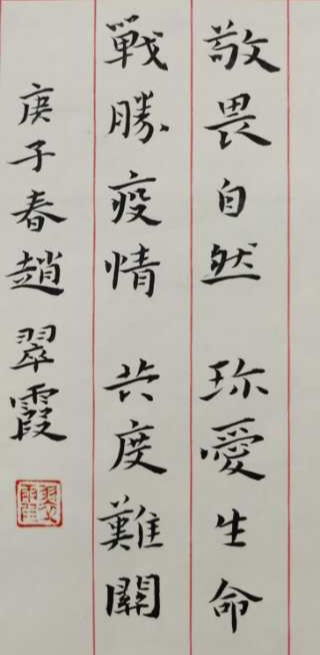 敬畏自然 珎愛生命
戰勝疫情 共度難關
庚子春趙翠霞